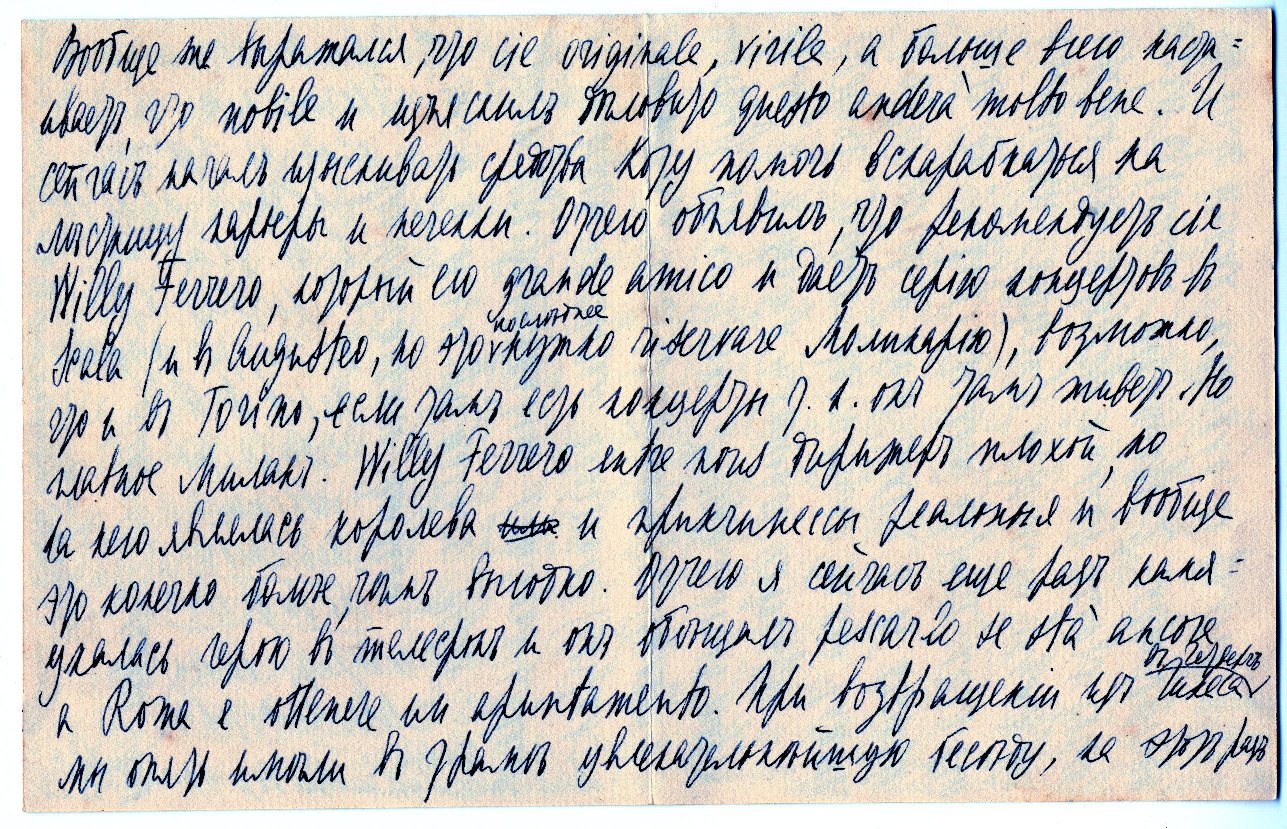 Вообще же выражался, что сіе originale, virile, а больше всего настаи=
ваетъ, что nobile и изъяснилъ дословно questo anderà molto bene. И
сейчасъ началъ изыскивать средства Коту помочь вскарабкаться на
лѣстницу карьеры и печенки. Отчего объявилъ, что рекомендуетъ сіе
Willy Ferrero, который его grande amico и даетъ серію концертовъ въ
Scala (и въ Augusteo, но это послѣднее нужно riservare Молинарію), возможно,
что и въ Torino, если тамъ есть концерты т. к. онъ тамъ живетъ. Но
главное Миланъ. Willy Ferrero entre nous дирижеръ плохой, но
на него являлась королева и принчипессы реальныя и вообще
это конечно болѣе, чѣмъ выгодно. Отчего я сейчасъ еще разъ
герою въ телефонъ и онъ обѣщалъ pescarlo se stà ancora
a Roma e ottenere un apuntamento. При возвращеніи изъ въ четвергъ
мы опять имѣли въ трамѣ увлекательнѣйшую бесѣду, на этотъ разъ